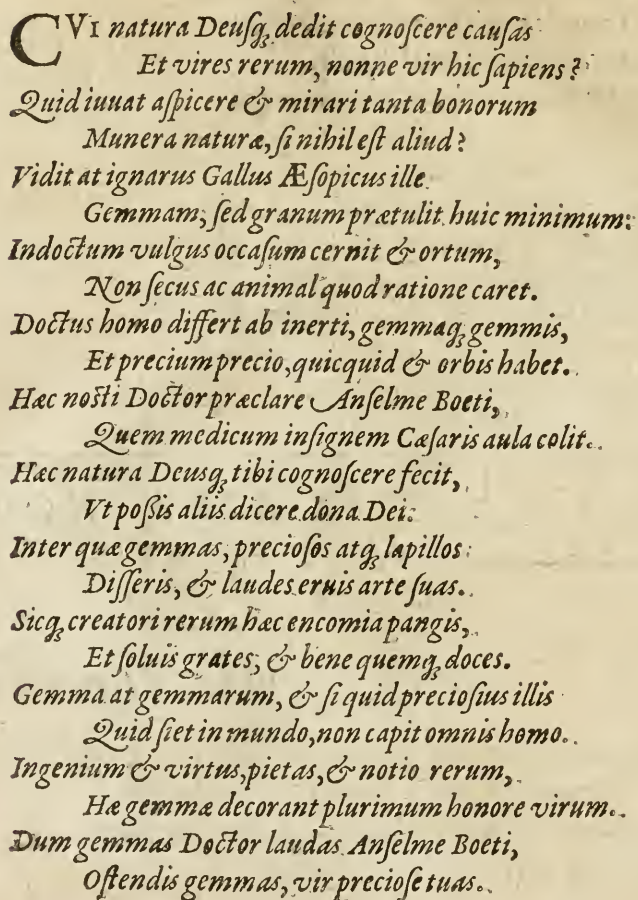 CVI natura Deuſq; dedit cognoſcere cauſas
Et vires rerum, nonne vir hic ſapiens?
Quid iuuat aſpicere & mirari tanta bonorum
Munera naturæ, ſi nihil eſt aliud?
Vidit at ignarus Gallus Æſopicus ille
Gemmam; ſed granum prætulit huic minimum:
Indoctum vulgus occaſum cernit & ortum,
Non ſecus ac animal quod ratione caret.
Doctus homo differt ab inerti, gemmaq; gemmis,
Et precium precio, quicquid & orbis habet.
Hæc noſti Doctor præclare Anſelme Boeti,
Quem medicum inſignem Cæſaris aula colit.
Hæc natura Deusq; tibi cognoſcere fecit,
Vt poſsis aliis dicere dona Dei:
Inter quæ gemmas, precioſos atq; lapillos
Diſſeris, & laudes eruis arte ſuas.
Sicq; creatori rerum hæc encomia pangis,
Et ſoluis grates; & bene quemq; doces.
Gemma at gemmarum, & ſi quid precioſius illis
Quid ſiet in mundo, non capit omnis homo.
Ingenium & virtus, pietas, & notio rerum,
Hæ gemmæ decorant plurimum honore virum.
Dum gemmas Doctor laudas Anſelme Boeti,
Oſtendis gemmas, vir precioſe tuas.